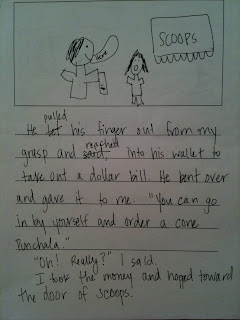 Sure
SCOOPS
pulled
He let his finger out from my
reached
grasp and sard, into his wallet to
take out a dollar bill. He bent over
and gave it to me. "You can go
in by yourself and order a cone
Punchala."
"Oh! Really?" I said.
I took the money and hopped toward
the door of Scoops.